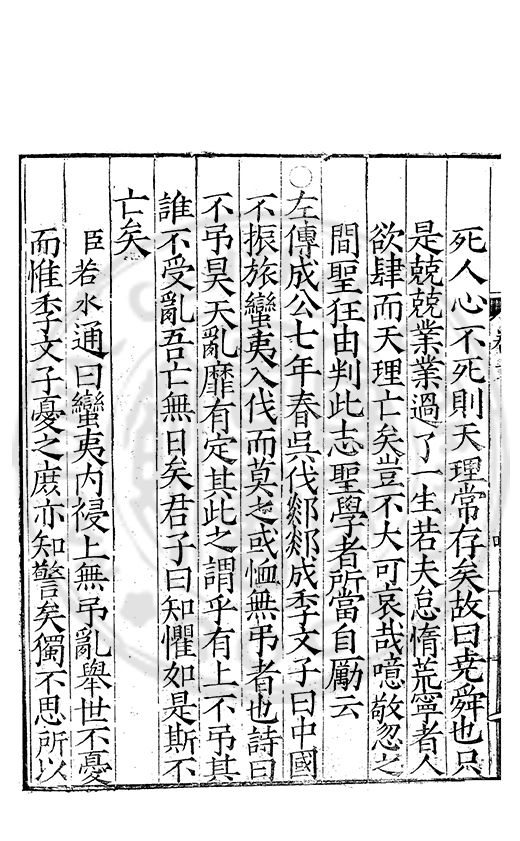 死人心不死則天理常存矣故曰堯舜也只
是兢兢業業過了一生若夫怠惰荒寧者人
欲肆而天理亡矣豈不大可哀哉噫敬忽之
間聖狂由判此志聖學者所當自勵云
○左傳成公七年春吳伐郯郯成季文子曰中國
不振旅蠻夷入伐而莫之或恤無弔者也詩曰
不弔昊天亂靡有定其此之謂乎有上不弔其
誰不受亂吾亡無日矣君子曰知懼如是斯不
亡矣
臣若水通曰蠻夷內侵上無弔亂舉世不憂
而惟季文子憂之庶亦知警矣獨不思所以